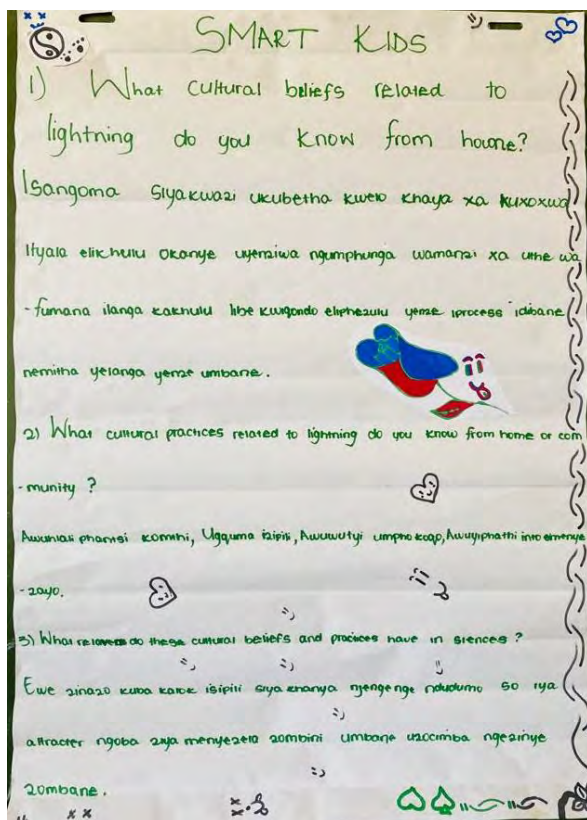 SMART KIDS
1) What cultural beliefs related to
lightning do you know from home?
Isangoma siyakwazi ukubetha kwelo khaya xa kuxoxwa
ityala elikhulu okanye uyenziwa ngumphunga wamanzi xa uthe wa
-fumana ilanga kakhulu libe kwiqondo eliphezulu yenze iprocess idibane
nemitha yelanga yenze umbane.
2) What cultural practices related to lightning do you know from home or com
-munity?
Awuhlali phansi komthi, Ugquma izipili, Awuwutyi umphokoqo, Awuyiphathi into emenye
-zayo.
3) What do these cultural beliefs and practices have in siences?
Ewe zinazo kuba kalok isipili siya khanya njenge ndudumo so iya
attracter ngoba ziya menyezela zombini umbane uzocimba ngezinye
zombane.